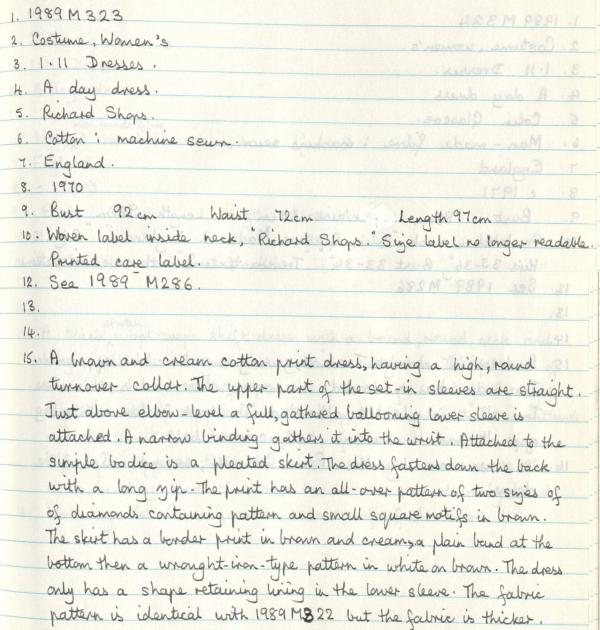 1. 1989 M 323
2. Costume, Women's
3. 1.11 Dresses.
4. A day dress.
5. Richard Shops.
6. Cotton; machine sewn.
7. England.
8. 1970
9. Bust 92cm Waist 72cm Length 97cm
10. Woven label inside neck, "Richard Shops." Size label no longer readable.
Printed care label.
12. See 1989 M286.
13.
14.
15. A brown and cream cotton print dress, having a high, round
turnover collar. The upper part of the set-in sleeves are straight.
Just above elbow-level a full, gathered ballooning lower sleeve is
attached. A narrow binding gathers it into the wrist. Attached to the
simple bodice is a pleated skirt. The dress fastens down the back
with a long zip. The print has an all-over pattern of two sizes of
of diamonds containing pattern and small square motifs in brown.
The skirt has a border print in brown and cream, a plain band at the
bottom then a wrought-iron-type pattern in white on brown. The dress
only has a shape retaining lining in the lower sleeve. The fabric
pattern is identical with 1989 M322 but the fabric is thicker.